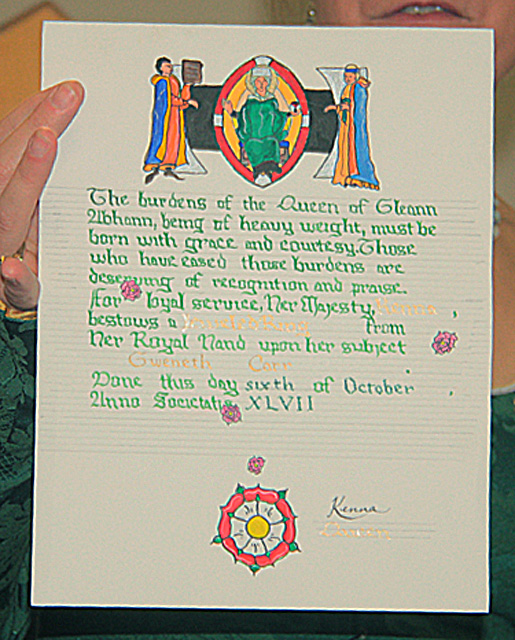 The burdens of the Queen of Gleann
Abhann, being of heavy weight, must be
born with grace and courtesy. Those
who have eased those burdens are
deserving of recognition and praise.
For loyal service, Her Majesty, Kenna,
bestows a from
Her Royal Hand upon her subject
Gweneth Carr.
Done this day sixth of October,
Anno Societatis XLVII
Kenna
Queen